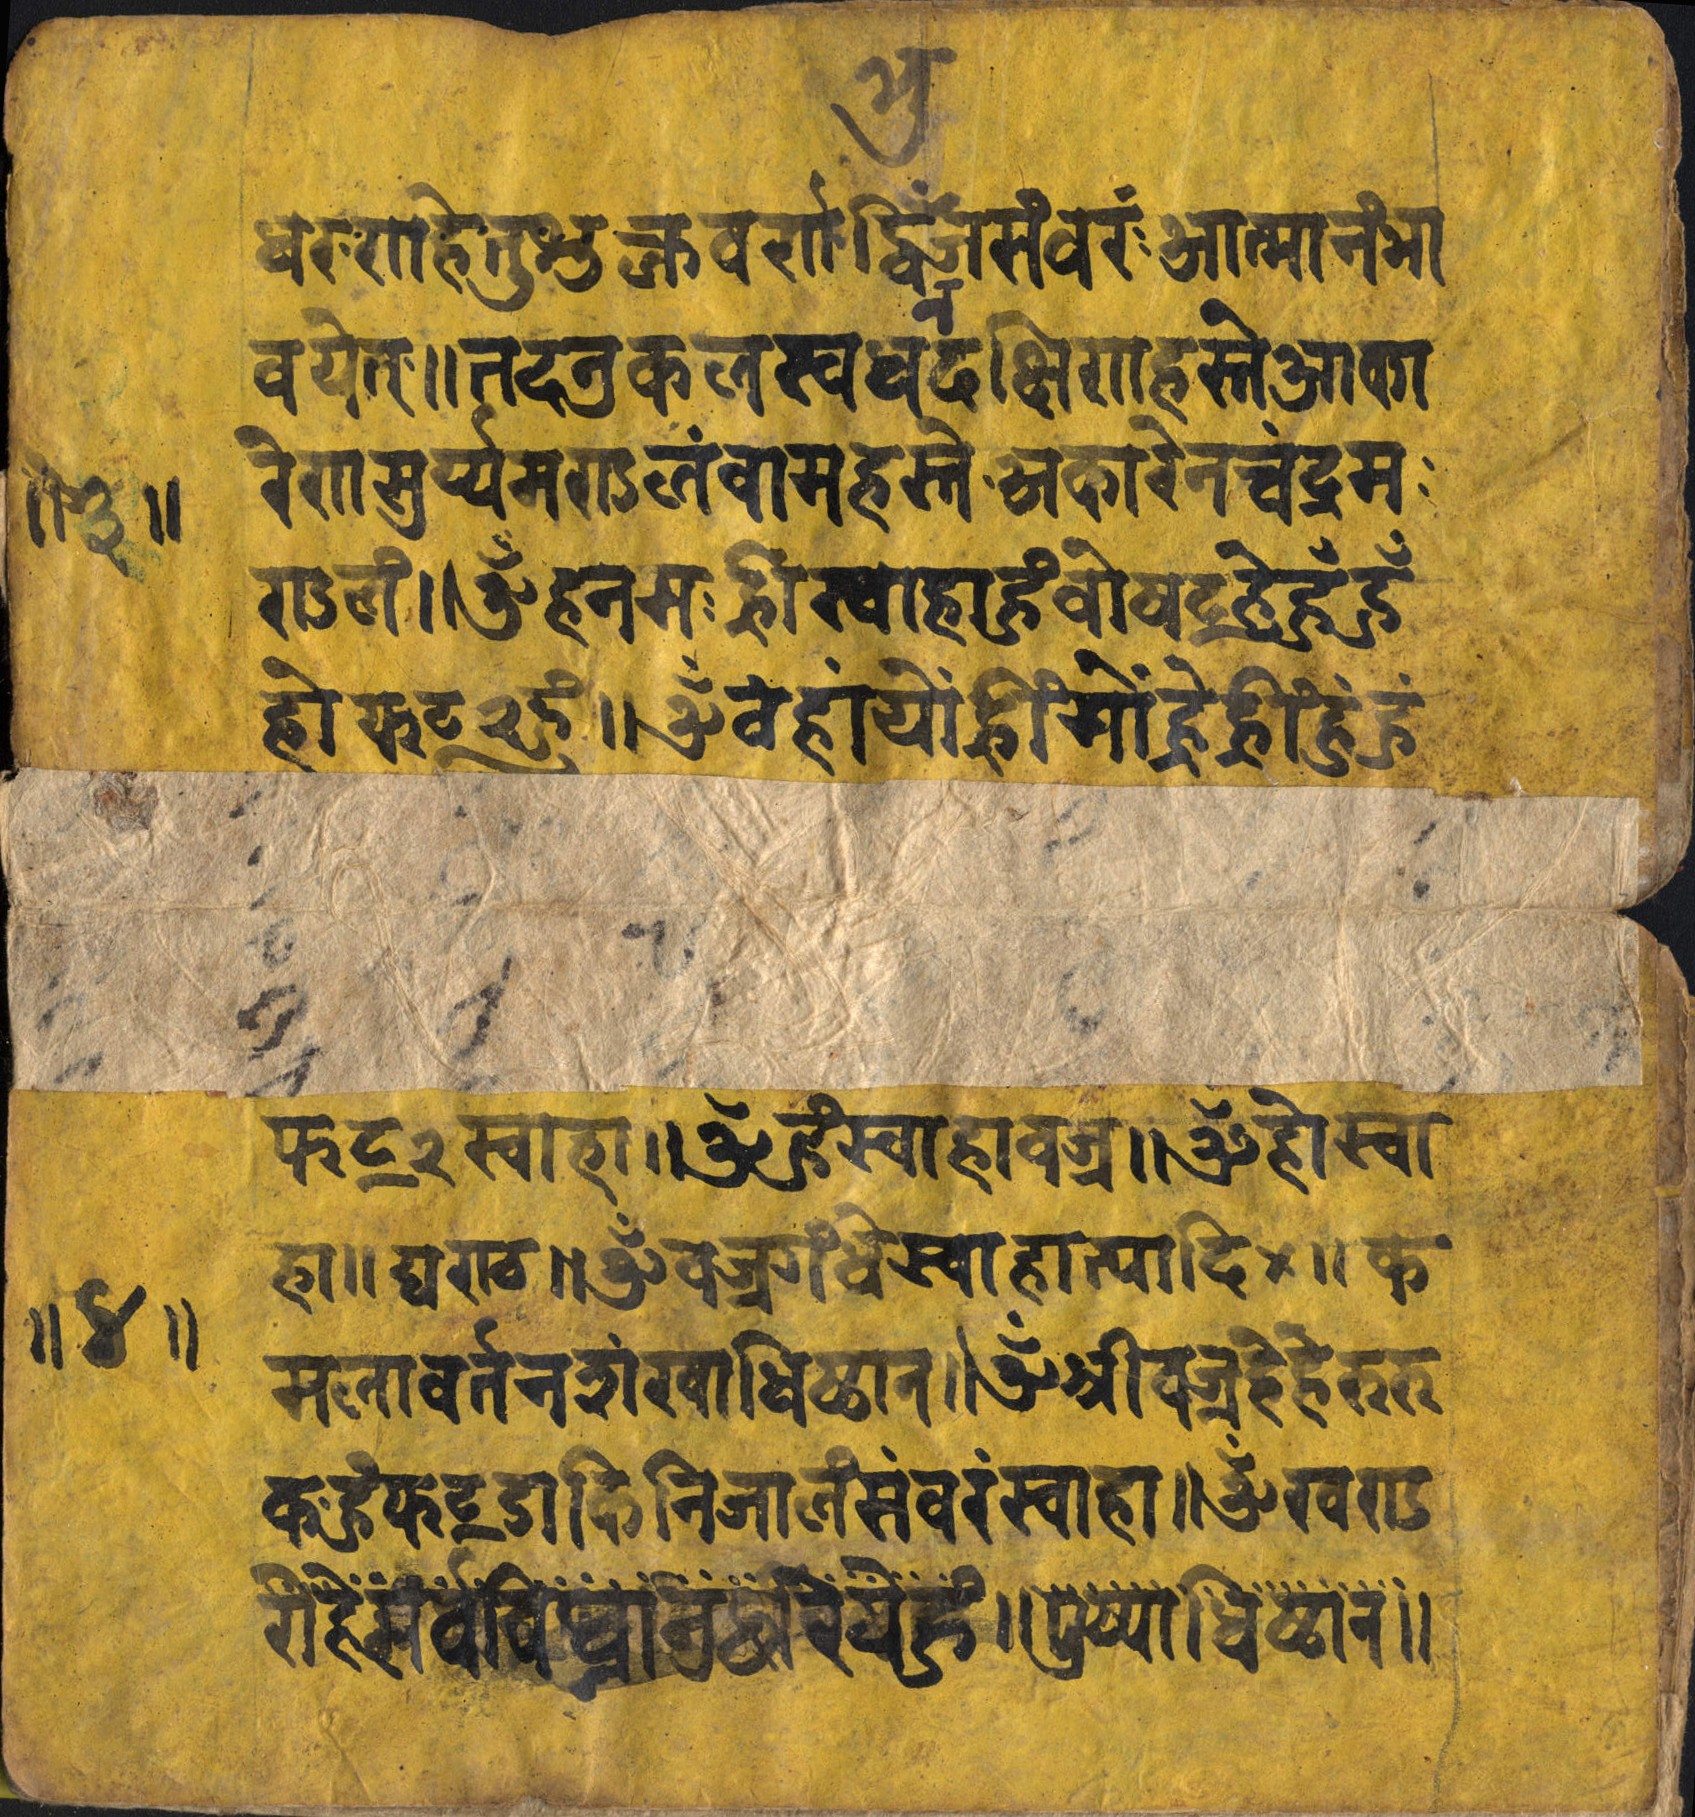 धरणहेतुशुक्लवर्णाद्विभुजसंवरंः आत्मानंभा
वयेत्॥ तदनुकलस्वधवदक्षिणहस्तेआका
रेणसुर्य्यमण्डलंवामहस्ते अकारेनचंद्रमः
॥३॥
ण्डलं॥ ॐ हनमः हिस्वाहाहुंवोषट्हेहुँहुँ
हो फट्२हुं॥ ॐ वंहांयोंह्रींमोंह्रेंह्रींहुंहुं
फट्२स्वाहा॥ ॐ हुंस्वाहावज्र॥ ॐ होस्वा
हा॥ द्यण्ठ॥ ॐ वज्रगंधेस्वाहात्यादि×॥ क
॥४॥
मलावर्तनशंखाधिष्ठान॥ ॐ श्रीवज्रहेहेरुरु
कहुंफट्डाकिनिजालंसंवरंस्वाहा॥ ॐ खण्ड
रोहेसर्वविघ्नान् हुं॥ पुष्पाधिष्ठान॥